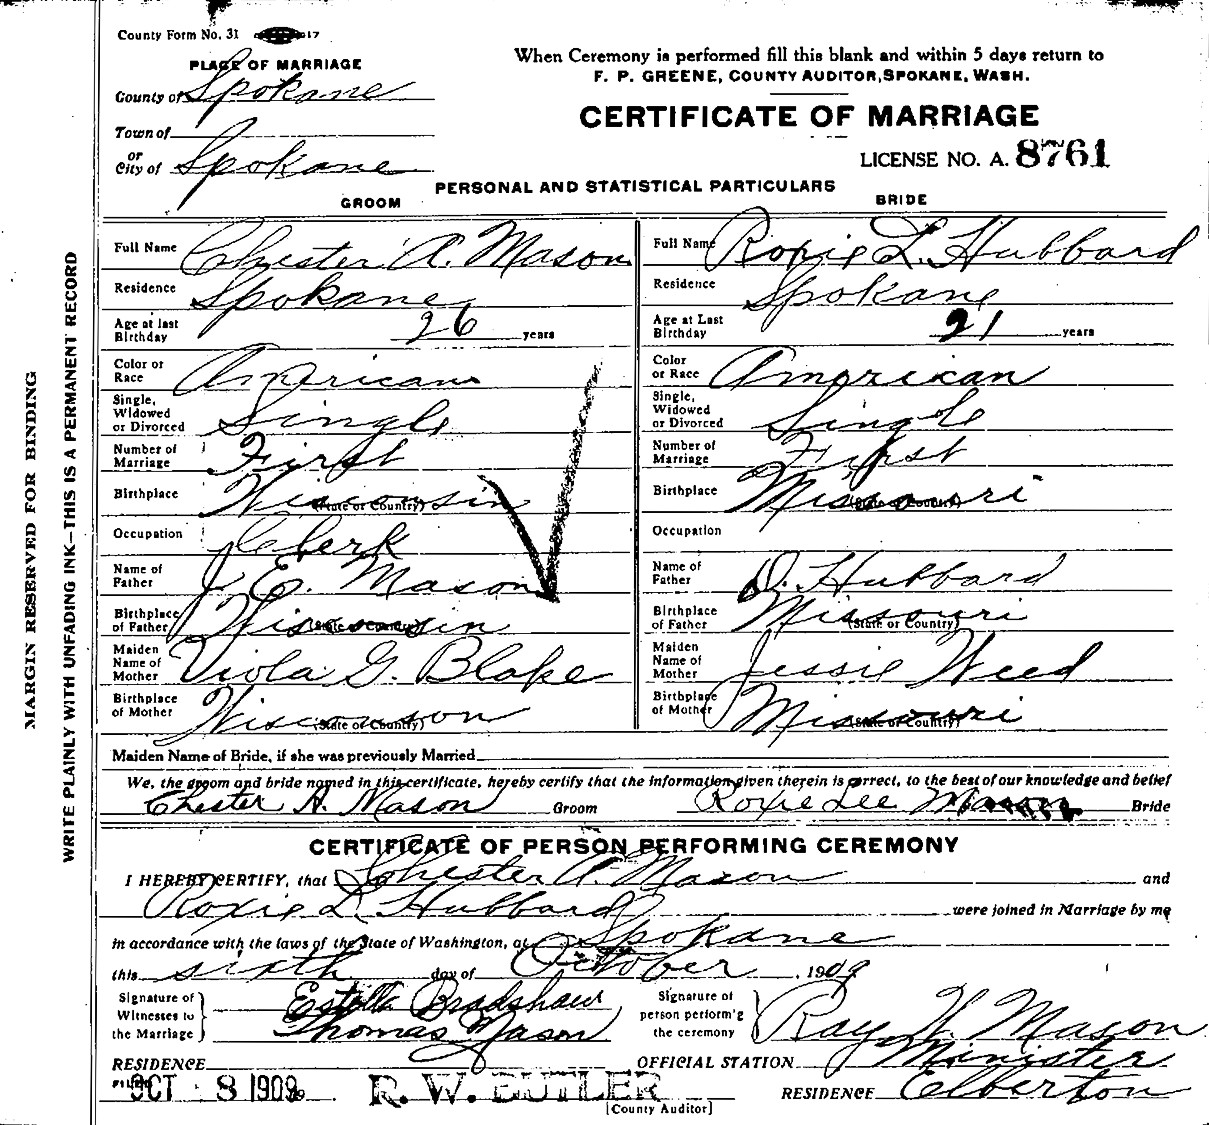 County Form No. 31 17
PLACE OF MARRIAGE
County of Spokane
Town of
or
City of Spokane
When Ceremony is performed fill this blank and within 5 days return to
F. P. GREENE, COUNTY AUDITOR, SPOKANE, WASH.
CERTIFICATE OF MARRIAGE
LICENSE NO. A. 8761
PERSONAL AND STATISTICAL PARTICULARS
GROOM BRIDE
Full Name Chester A. Mason Full Name Roxie L. Hubbard
Residence Spokane Residence Spokane
Age at last Birthday 26 years Age at Last Birthday 21 years
Color or Race American Color or Race American
Single, Widowed or Divorced Single Single, Widowed or Divorced Single
Number of Marriage First Number of Marriage First
Birthplace Wisconsin (State or Country) Birthplace Missouri (State or Country)
Occupation Clerk Occupation
Name of Father J. E. Mason Name of Father D. Hubbard
Birthplace of Father Wisconsin (State or Country) Birthplace of Father Missouri (State or Country)
Maiden Name of Mother Viola G. Blake Maiden Name of Mother Jessie Weed
Birthplace of Mother Wisconson (State or Country) Birthplace of Mother Missouri (State or Country)
Maiden Name of Bride, if she was previously Married
We, the groom and bride named in this certificate, hereby certify that the information given therein is correct, to the best of our knowledge and belief
Chester A. Mason Groom Roxie Lee Mason Bride
CERTIFICATE OF PERSON PERFORMING CEREMONY
I HEREBY CERTIFY, that Chester A. Mason and
Roxie L. Hubbard were joined in Marriage by me
in accordance with the laws of the State of Washington, at Spokane
this sixth day of October, 1909
Signature of Witnesses to the Marriage Estella Bradshaw Thomas Mason
Signature of person perform'g the ceremony Ray W. Mason
RESIDENCE OFFICIAL STATION Minister
FILED OCT 8 1909 R. W. BUTLER RESIDENCE Elberton
[County Auditor]
WRITE PLAINLY WITH UNFADING INK—THIS IS A PERMANENT RECORD
MARGIN RESERVED FOR BINDING